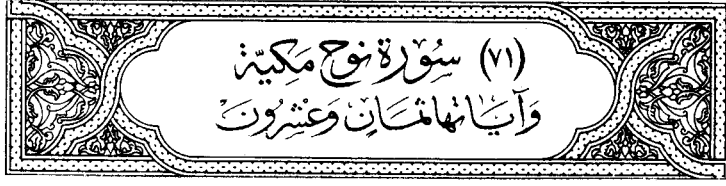 (٧١) سُوْرَة نوُح مَكيَّة
وَآيَاتهَا ثمَان وَعشرُونَ